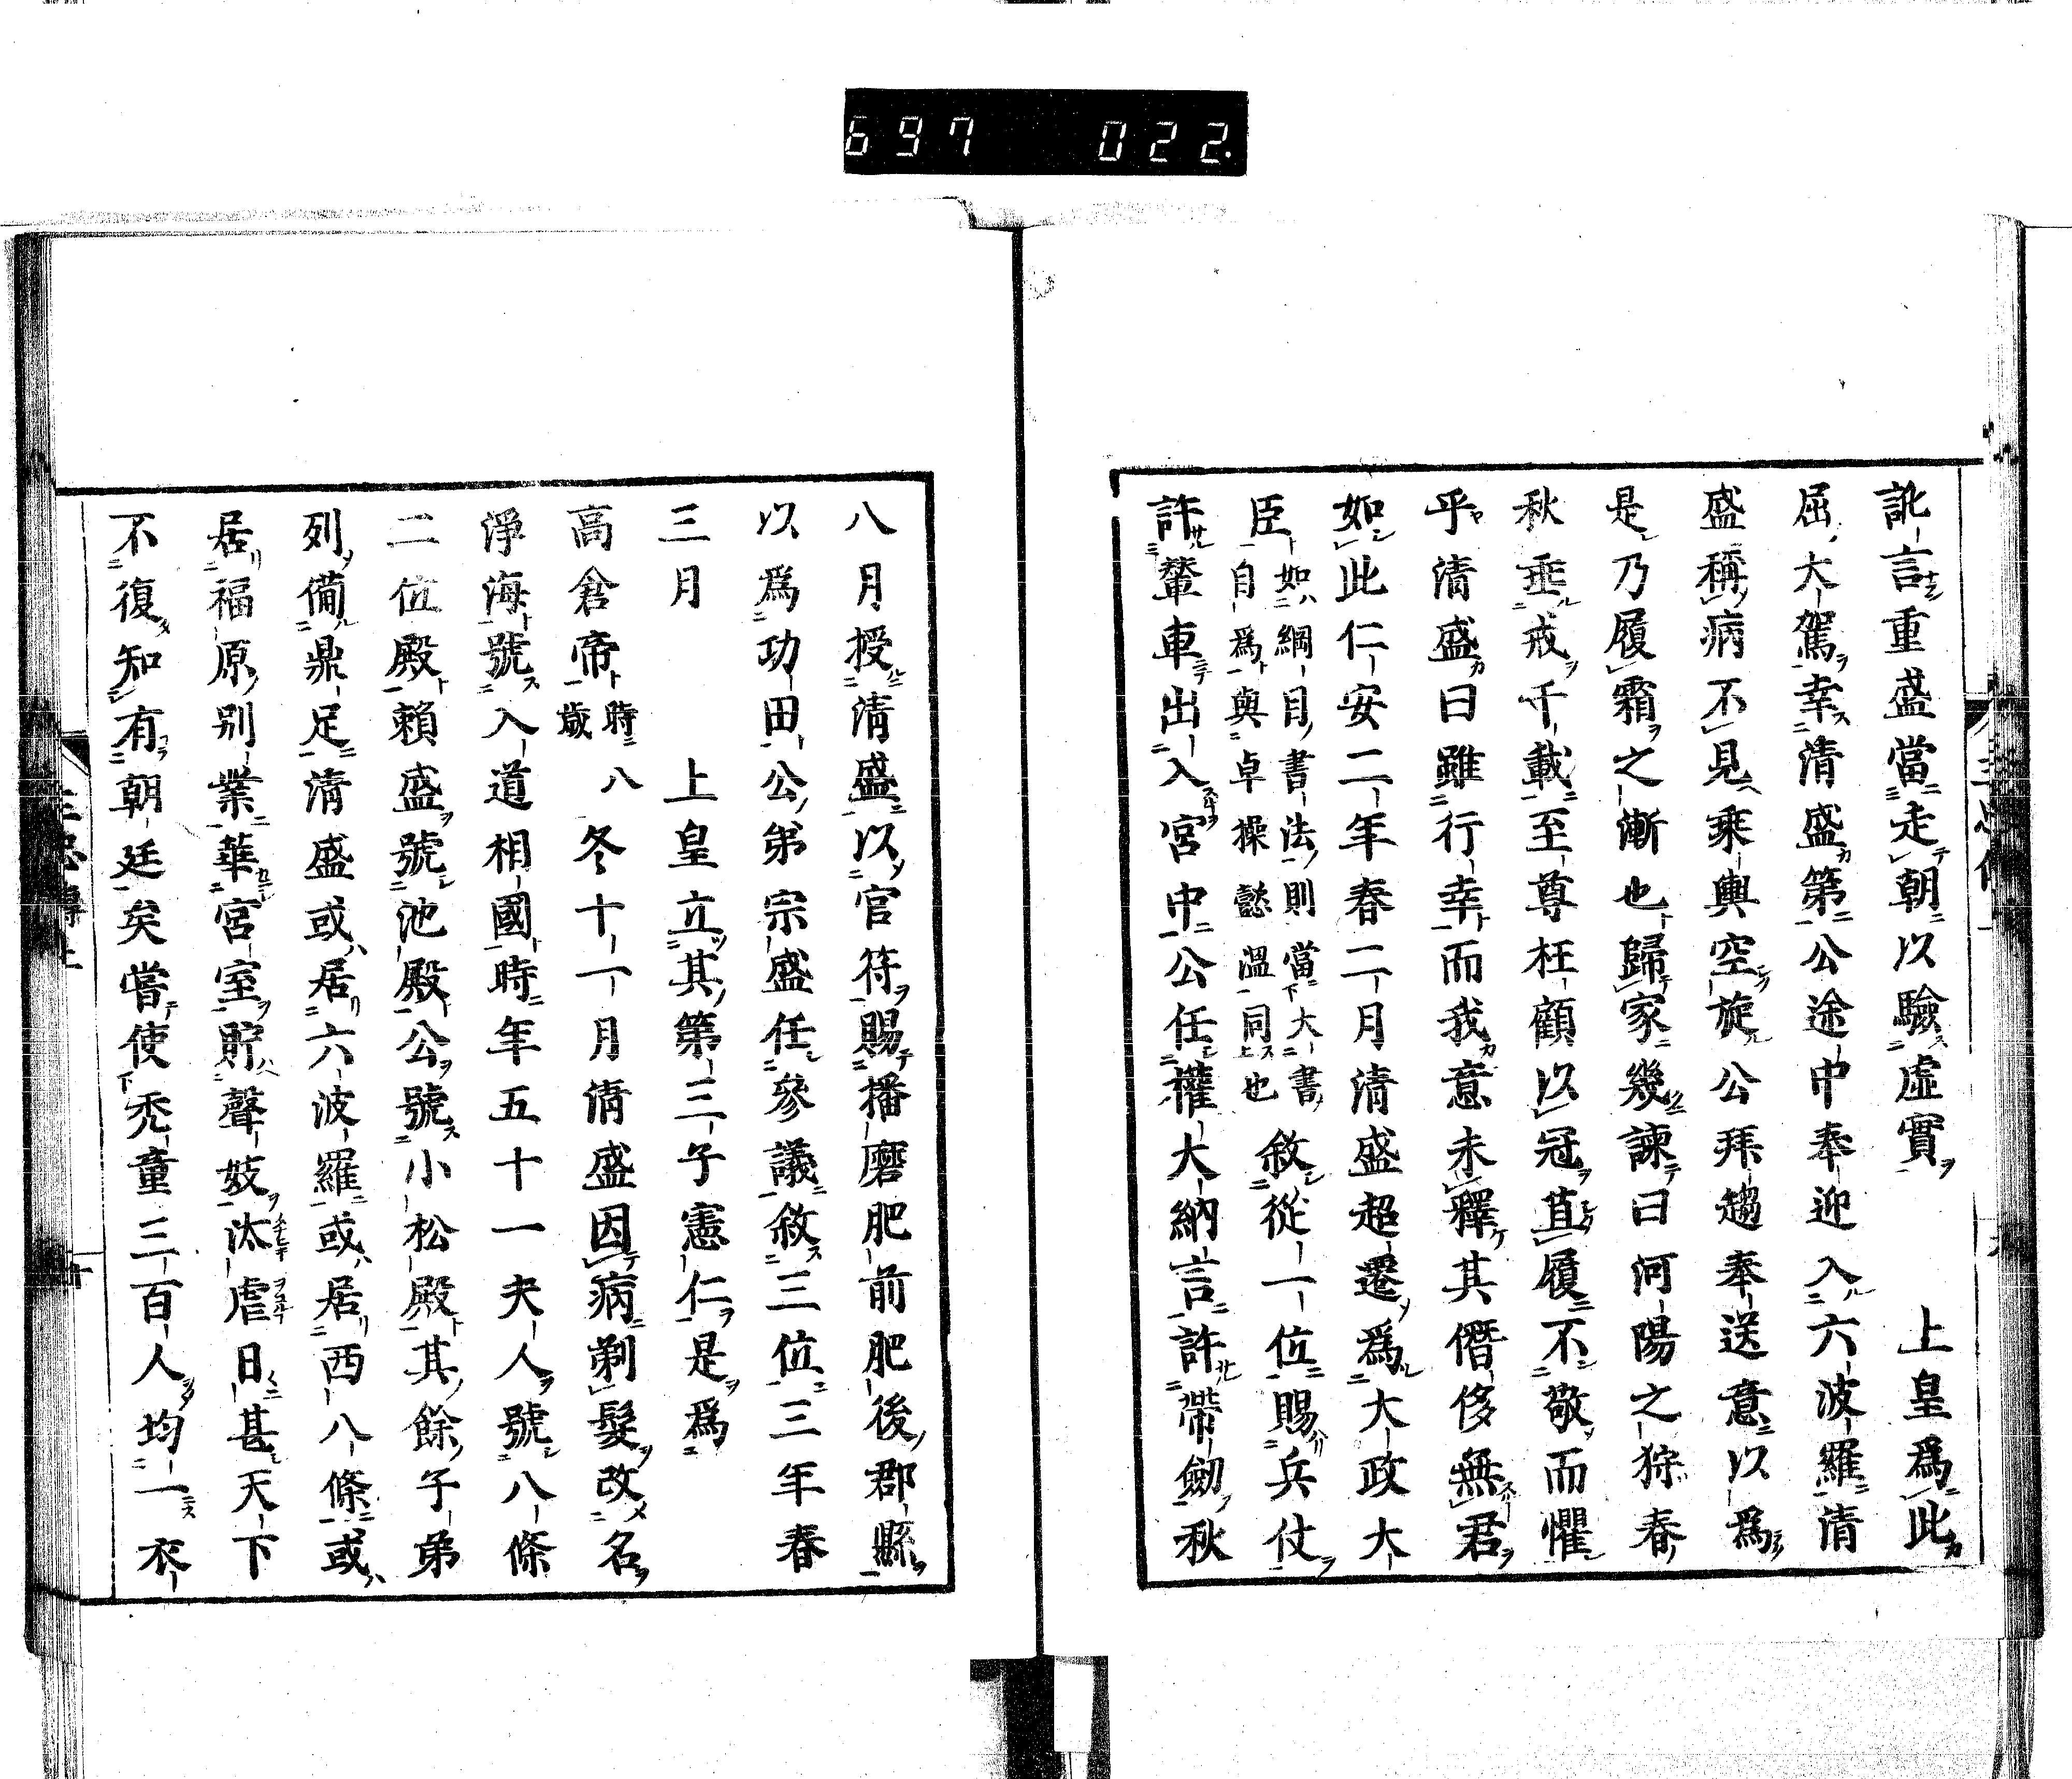 697 022.
訛言重盛當走朝以驗虛實　上皇爲此
屈大駕幸清盛第公途中奉迎入六波羅清
盛稱病不見乘輿空旋公拜趨奉送意以爲
是乃履霜之漸也歸家幾諫曰河陽之狩春
秋垂戒千載至尊枉顧以冠苴履不敬而懼
乎清盛曰雖行幸而我意未釋其僭侈無君
如此仁安二年春二月清盛超遷爲大政大
臣
如綱目書法則當大書
自爲與卓操懿溫同也
敘從一位賜兵仗
許輦車出入宮中公任權大納言許帶劒秋
八月授清盛以官符賜播磨肥前肥後郡縣
以爲功田公弟宗盛任參議敘三位三年春
三月　上皇立其第三子憲仁是爲
高倉帝
時八
歲
冬十一月清盛因病剃髮改名
淨海號入道相國時年五十一夫人號八條
二位殿賴盛號池殿公號小松殿其餘子弟
列備鼎足清盛或居六波羅或居西八條或
居福原別業華宮室貯聲妓汰虐日甚天下
不復知有朝廷矣嘗使禿童三百人均一衣